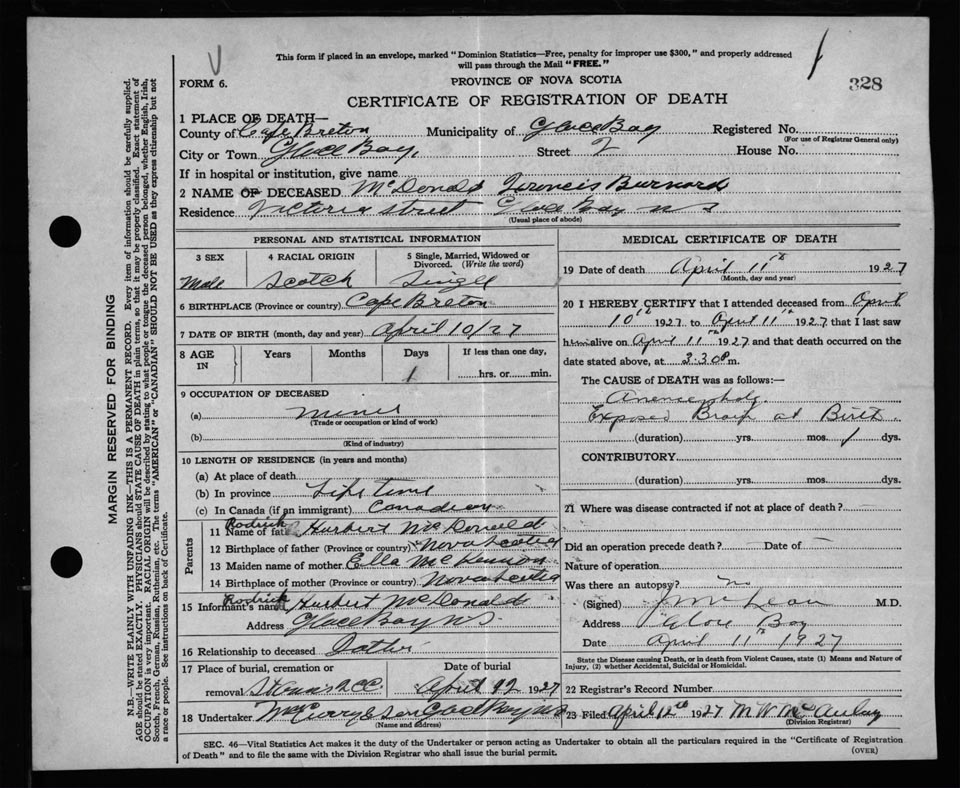 This form if placed in an envelope, marked "Dominion Statistics—Free, penalty for improper use $300," and properly addressed
will pass through the Mail "FREE."
FORM 6.
PROVINCE OF NOVA SCOTIA
328
CERTIFICATE OF REGISTRATION OF DEATH
1 PLACE OF DEATH—
County of Cape Breton Municipality of Glace Bay Registered No.
(For use of Registrar General only)
City or Town Glace Bay, Street House No.
If in hospital or institution, give name
2 NAME OF DECEASED McDonald Firencis Burnard
Residence Victoria Street Glace Bay NS
(Usual place of abode)
PERSONAL AND STATISTICAL INFORMATION
3 SEX 4 RACIAL ORIGIN 5 Single, Married, Widowed or Divorced. (Write the word)
Male Scotch Single
6 BIRTHPLACE (Province or country) Cape Breton
7 DATE OF BIRTH (month, day and year) April 10/27
8 AGE IN Years Months Days If less than one day,
1 hrs. or min.
9 OCCUPATION OF DECEASED
(a)
(Trade or occupation or kind of work)
(b)
(Kind of industry)
10 LENGTH OF RESIDENCE (in years and months)
(a) At place of death
(b) In province Life time
(c) In Canada (if an immigrant) Canadian
Parents
11 Name of father Rodrick Hurbert McDonald
12 Birthplace of father (Province or country) Nova Scotia
13 Maiden name of mother Ella McKinnon
14 Birthplace of mother (Province or country) Nova Scotia
15 Informant's name Rodrick Hurbert McDonald
Address Glace Bay NS.
16 Relationship to deceased Father
17 Place of burial, cremation or Date of burial
removal April 12 1927
18 Undertaker Glace Bay NS
(Name and address)
MEDICAL CERTIFICATE OF DEATH
19 Date of death April 11th 1927
(Month, day and year)
20 I HEREBY CERTIFY that I attended deceased from April
10th 1927 to April 11th 1927 that I last saw
him alive on April 11th 1927 and that death occurred on the
date stated above, at 3.30 P m.
The CAUSE of DEATH was as follows:
Anencephaly
Exposed Brain at Birth
(duration) yrs. mos. 1 dys.
CONTRIBUTORY
(duration) yrs. mos. dys.
21 Where was disease contracted if not at place of death?
Did an operation precede death? — Date of —
Nature of operation
Was there an autopsy? No
(Signed) J McLean M.D.
Address Glace Bay
Date April 11th 1927
State the Disease causing Death, or in death from Violent Causes, state (1) Means and Nature of
Injury, (2) whether Accidental, Suicidal or Homicidal.
22 Registrar's Record Number
23 Filed April 12th 1927 M W McAulay
(Division Registrar)
SEC. 46—Vital Statistics Act makes it the duty of the Undertaker or person acting as Undertaker to obtain all the particulars required in the "Certificate of Registration
of Death" and to file the same with the Division Registrar who shall issue the burial permit.
(OVER)
MARGIN RESERVED FOR BINDING
N.B.—WRITE PLAINLY WITH UNFADING INK—THIS IS A PERMANENT RECORD. Every item of information should be carefully supplied.
AGE should be stated EXACTLY. PHYSICIANS should STATE CAUSE OF DEATH in plain terms, so that it may be properly classified. Exact statement of
OCCUPATION is very important. RACIAL ORIGIN will be described by stating to what people or tongue the deceased person belonged, whether English, Irish,
Scotch, French, German, Russian, Ruthenian, etc. The terms "AMERICAN" or "CANADIAN" SHOULD NOT BE USED as they express citizenship but not
a race or people. See instructions on back of Certificate.